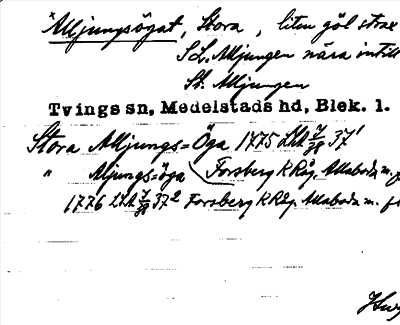 Alljungsögat, Stora, liten göl strax
S L. Alljungen nära intill
St. Alljungen
Tvings sn, Medelstads hd, Blek. l.
Stora Alljungs=Öga 1775 LMA 37¹
" Aljungs=öga (Forsberg K Råg. Allaboda m. fl
1776 LMA 37² Forsberg K Råg. Allaboda m. fl